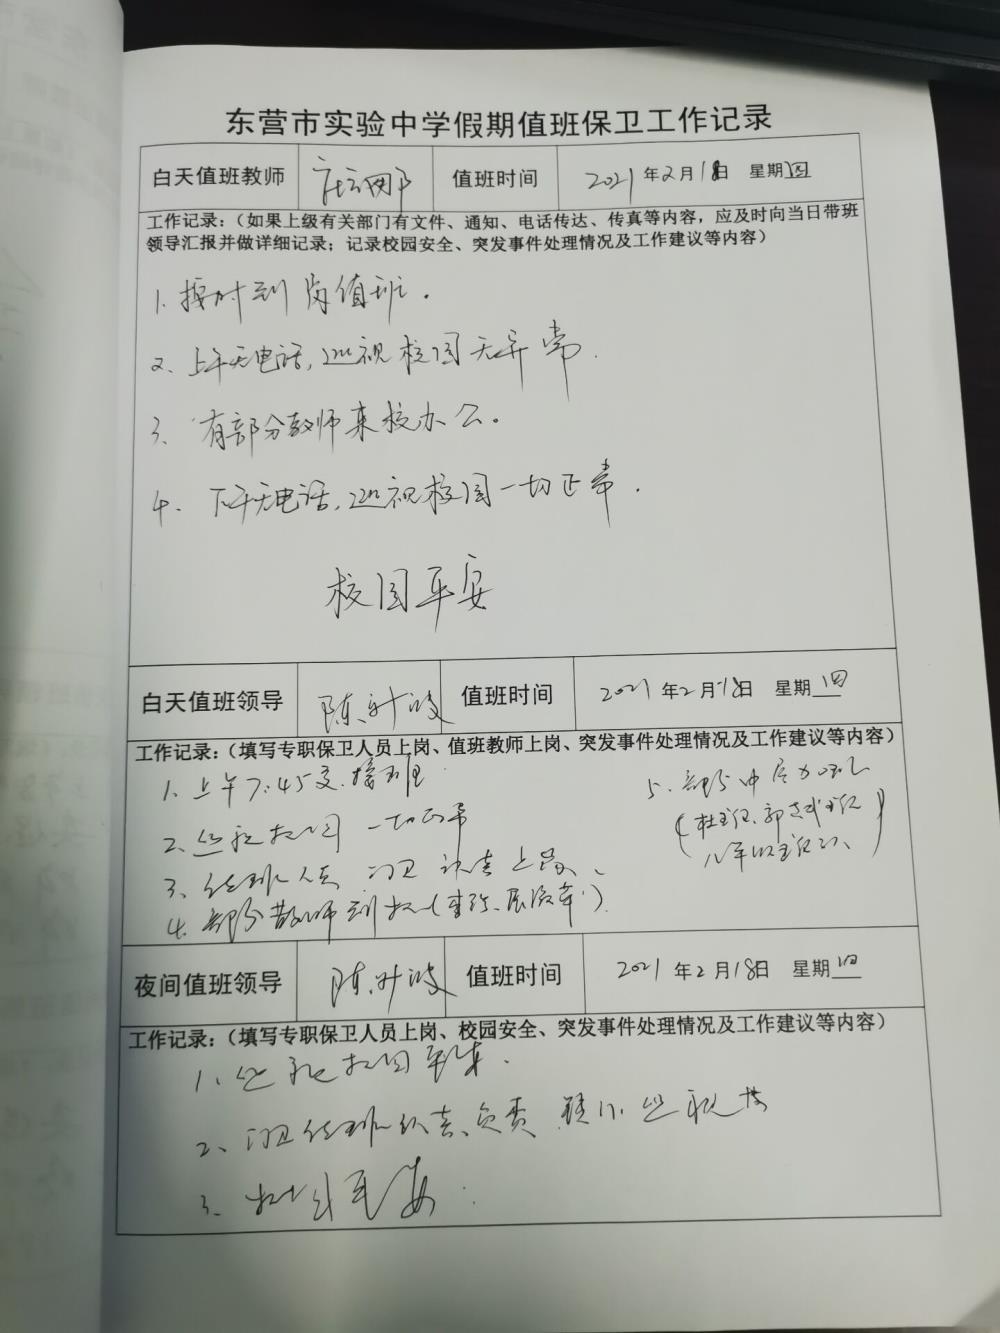 东营市实验中学假期值班保卫工作记录
白天值班教师 值班时间 2021年2月18日 星期四
工作记录:(如果上级有关部门有文件、通知、电话传达、传真等内容,应及时向当日带班
领导汇报并做详细记录;记录校园安全、突发事件处理情况及工作建议等内容)
1. 按时到岗值班。
2、上午无电话,巡视校园无异常.
3、有部分教师来校办公。
4. 下午无电话,巡视校园一切正常.
校园平安
白天值班领导 陈 值班时间 2021年2月18日 星期四
工作记录:(填写专职保卫人员上岗、值班教师上岗、突发事件处理情况及工作建议等内容)
1. 上午7:45交接班
2、巡视校园一切正常
3、值班人员 门卫 认真上岗、
4. 部分教师到校
5. 部分中层办公
夜间值班领导 陈 值班时间 2021年2月18日 星期四
工作记录:(填写专职保卫人员上岗、校园安全、突发事件处理情况及工作建议等内容)
1、巡视校园平安.
2、门卫值班认真负责 巡视
3. 校园平安